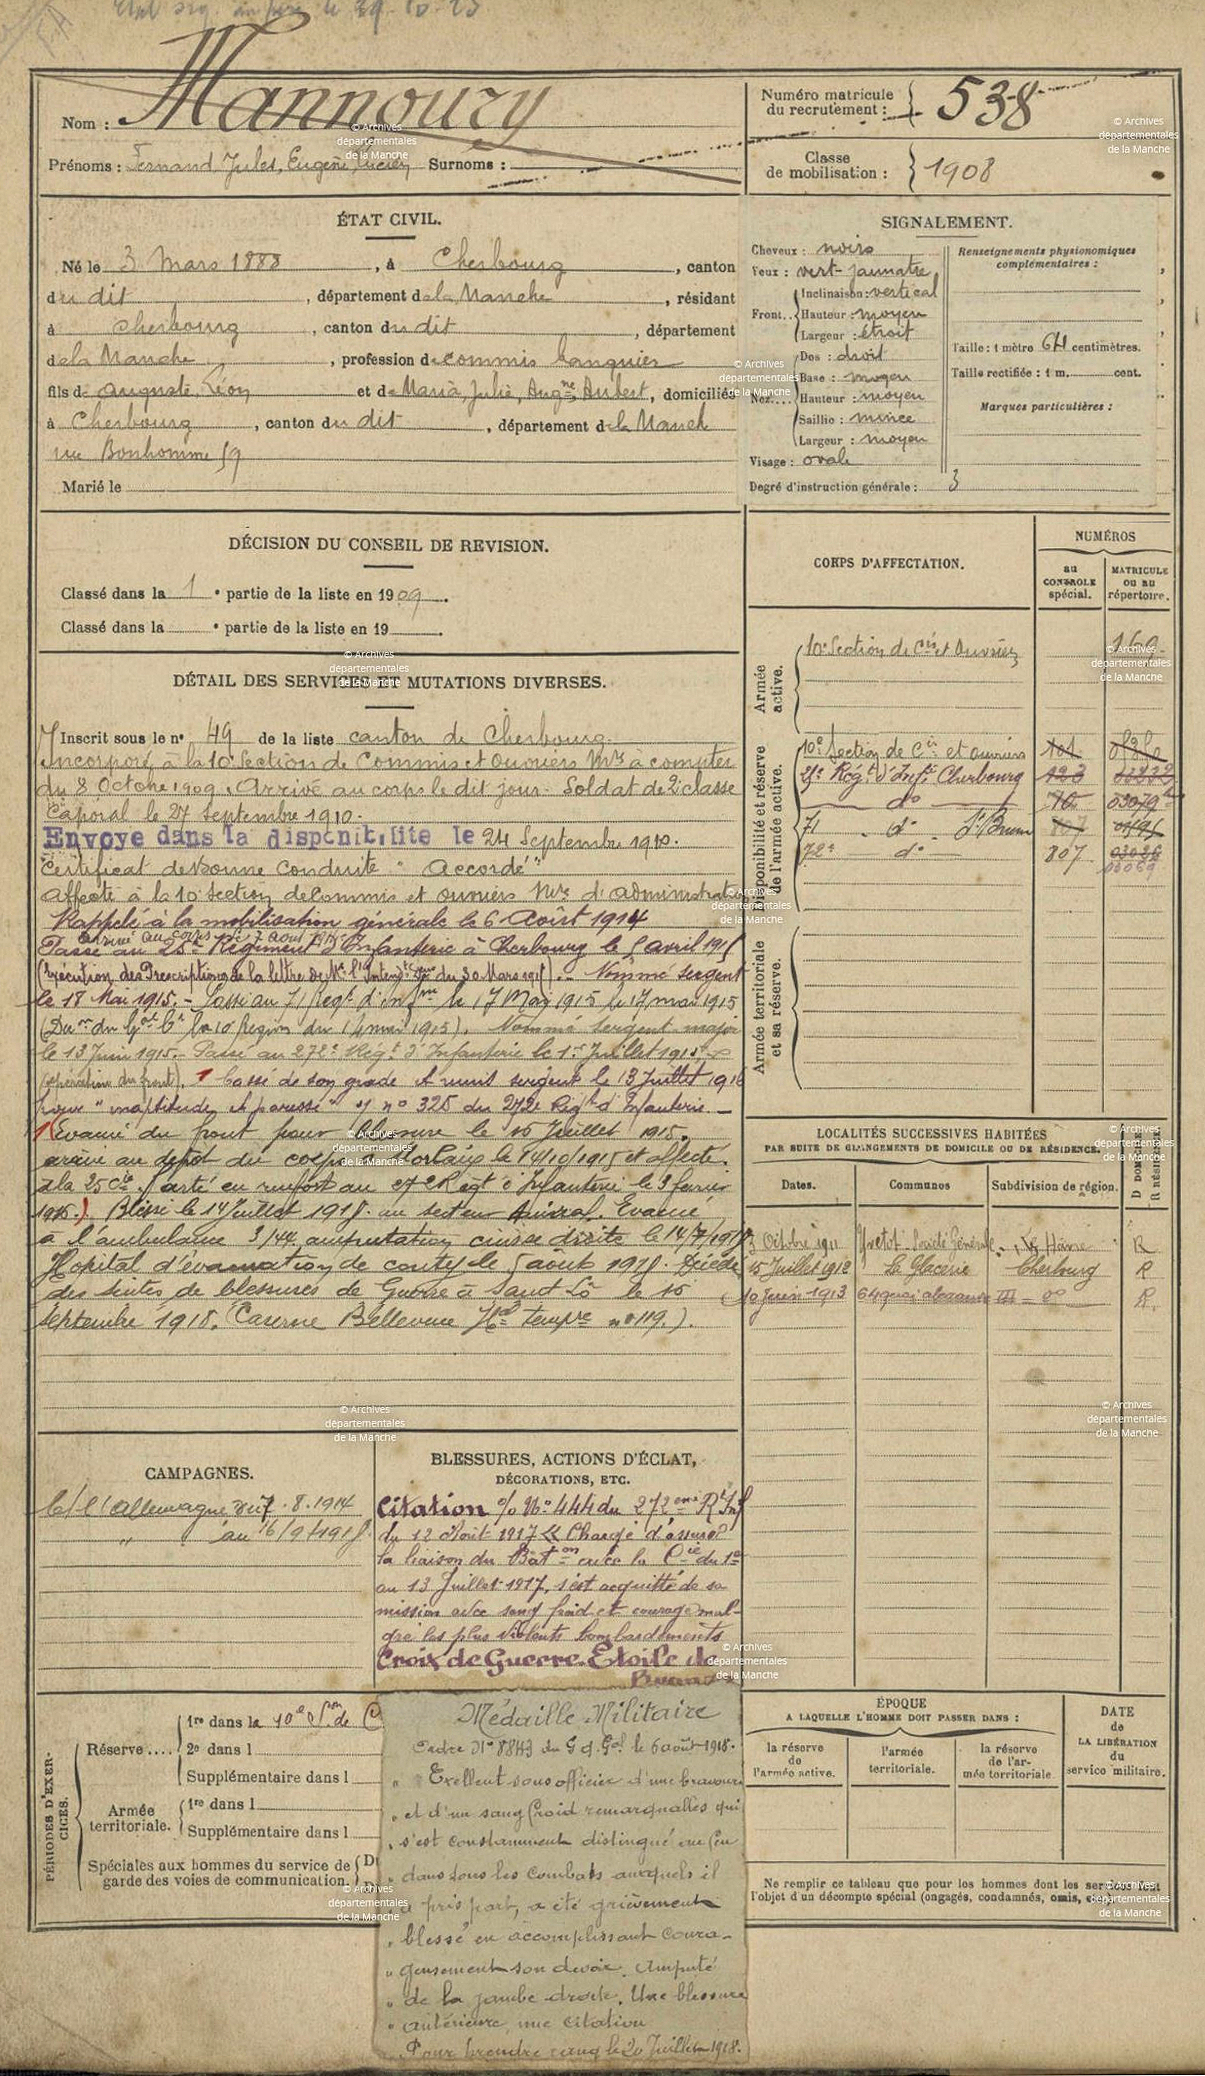 Mannoury
Nom :
Prénoms : Fernand, Jules, Eugène, Lucien Surnoms :
Numéro matricule du recrutement : 538
Classe de mobilisation : 1908
ÉTAT CIVIL.
Né le 3 Mars 1888, à Cherbourg, canton
du dit, département de la Manche, résidant
à Cherbourg, canton du dit, département
de la Manche, profession de commis banquier
fils de Auguste, Léon et de Maria, Julie, Augne, Aubert, domiciliés
à Cherbourg, canton du dit, département de la Manch
rue Bonhomme 59
Marié le
SIGNALEMENT.
Cheveux : noirs
Yeux : vert-jaunatre
Inclinaison : vertical
Front.. Hauteur : moyen
Largeur : étroit
Dos : droit
Base : moyen
Nez.... Hauteur : moyen
Saillie : mince
Largeur : moyen
Visage : ovale
Degré d'instruction générale : 3
Renseignements physionomiques
complémentaires :
Taille : 1 mètre 64 centimètres.
Taille rectifiée : 1 m. cent.
Marques particulières :
DÉCISION DU CONSEIL DE REVISION.
Classé dans la 1e partie de la liste en 1909.
Classé dans la e partie de la liste en 19
DÉTAIL DES SERVICES ET MUTATIONS DIVERSES.
Inscrit sous le n° 49 de la liste canton de Cherbourg.
Incorporé à la 10e Section de Commis et ouvriers Mres à compter
du 8 Octobre 1909. Arrivé au corps le dit jour. Soldat de 2e classe
Caporal le 27 Septembre 1910.
Envoyé dans la disponibilité le 24 Septembre 1910.
Certificat de Bonne Conduite "Accordé"
Affecté à la 10e Section de Commis et ouvriers Mres d'administration
Rappelé à la mobilisation générale le 6 Août 1914
Arrivé au corps le 7 août 1914
Passé au 25e Régiment d'Infanterie à Cherbourg le 5 avril 1915
(Exécution des Prescriptions de la lettre de Mr l'Intendt du 30 Mars 1915). - Nommé sergent
le 18 Mai 1915. - Passé au 71 Regt d'Infie le 17 Mai 1915 le 17 mai 1915
(Don du Gal Ct la 10 Région du 14 mai 1915). Nommé sergent major
le 13 Juin 1915. - Passé au 272e Régt d'Infanterie le 1er Juillet 1915
(opération du front). Cassé de son grade et remis sergent le 13 Juillet 1916
pour "inaptitude et paresse" n° 325 du 272e Regt d'Infanterie. -
(Evacué du front pour blessure le 15 Juillet 1915.
arrivé au dépôt du corps Morlaix le 14/10/1915 et affecté
à la 25 Cie. Parti en renfort au 272 Regt d'Infanterie le 3 février
1916.) Blessé le 14 Juillet 1918. au secteur Evacué
à l'ambulance 3/44. amputation cuisse droite le 14/7/1918
Hopital d'évacuation de le 5 août 1918. Décédé
des suites de blessures de Guerre à Saint Lô le 15
Septembre 1918. (Caserne Bellevue Hal tempre n° 119.).
CORPS D'AFFECTATION.
NUMÉROS
au CONTROLE spécial.
MATRICULE ou au répertoire.
Armée active.
10e Section de Cis et Ouvriers 169
Disponibilité et réserve de l'armée active.
10e Section de Cis et ouvriers 101
25e Régt d'Infie Cherbourg 123
do 76 03079
71 do St Brieuc 807
72e do 807
Armée territoriale et sa réserve.
LOCALITÉS SUCCESSIVES HABITÉES
PAR SUITE DE CHANGEMENTS DE DOMICILE OU DE RÉSIDENCE.
Dates. Communes Subdivision de région. D DOMICILE R RÉSIDENCE
3 Octobre 1911 Yvetot Société Générale Le Havre R
15 Juillet 1912 La Glacerie Cherbourg R
10 Juin 1913 64 quai alexandre III do R.
CAMPAGNES.
C/ l'Allemagne du 7.8.1914
" au 16/9/1918.
BLESSURES, ACTIONS D'ÉCLAT,
DÉCORATIONS, ETC.
Citation o/ No 444 du 272eme Rt Inf
du 12 Août 1917 « Chargé d'assurer
la liaison du Baton avec la Cie du 1er
au 13 Juillet 1917, s'est acquitté de sa
mission avec sang froid et courage mal-
gré les plus violents bombardements
Croix de Guerre. Etoile de
Bronze
Médaille Militaire
Ordre N° 8843 du G.d.Gal le 6 août 1918.
" Exellent sous officier d'une bravoure
" et d'un sang froid remarquables qui
" s'est constamment distingué au feu
" dans tous les combats auxquels il
" a pris part, a été grièvement
" blessé en accomplissant coura-
" geusement son devoir. Amputé
" de la jambe droite. Une blessure
" antérieure, une citation
Pour prendre rang le 20 Juillet 1918.
PÉRIODES D'EXERCICES.
Réserve.... 1re dans la 10e Son de C
2e dans l
Supplémentaire dans l
Armée territoriale. 1re dans l
Supplémentaire dans l
Spéciales aux hommes du service de
garde des voies de communication.
ÉPOQUE
A LAQUELLE L'HOMME DOIT PASSER DANS :
la réserve de l'armée active.
l'armée territoriale.
la réserve de l'armée territoriale
DATE de LA LIBÉRATION du service militaire.
Ne remplir ce tableau que pour les hommes dont les services sont
l'objet d'un décompte spécial (engagés, condamnés, omis, etc.)
© Archives
départementales
de la Manche